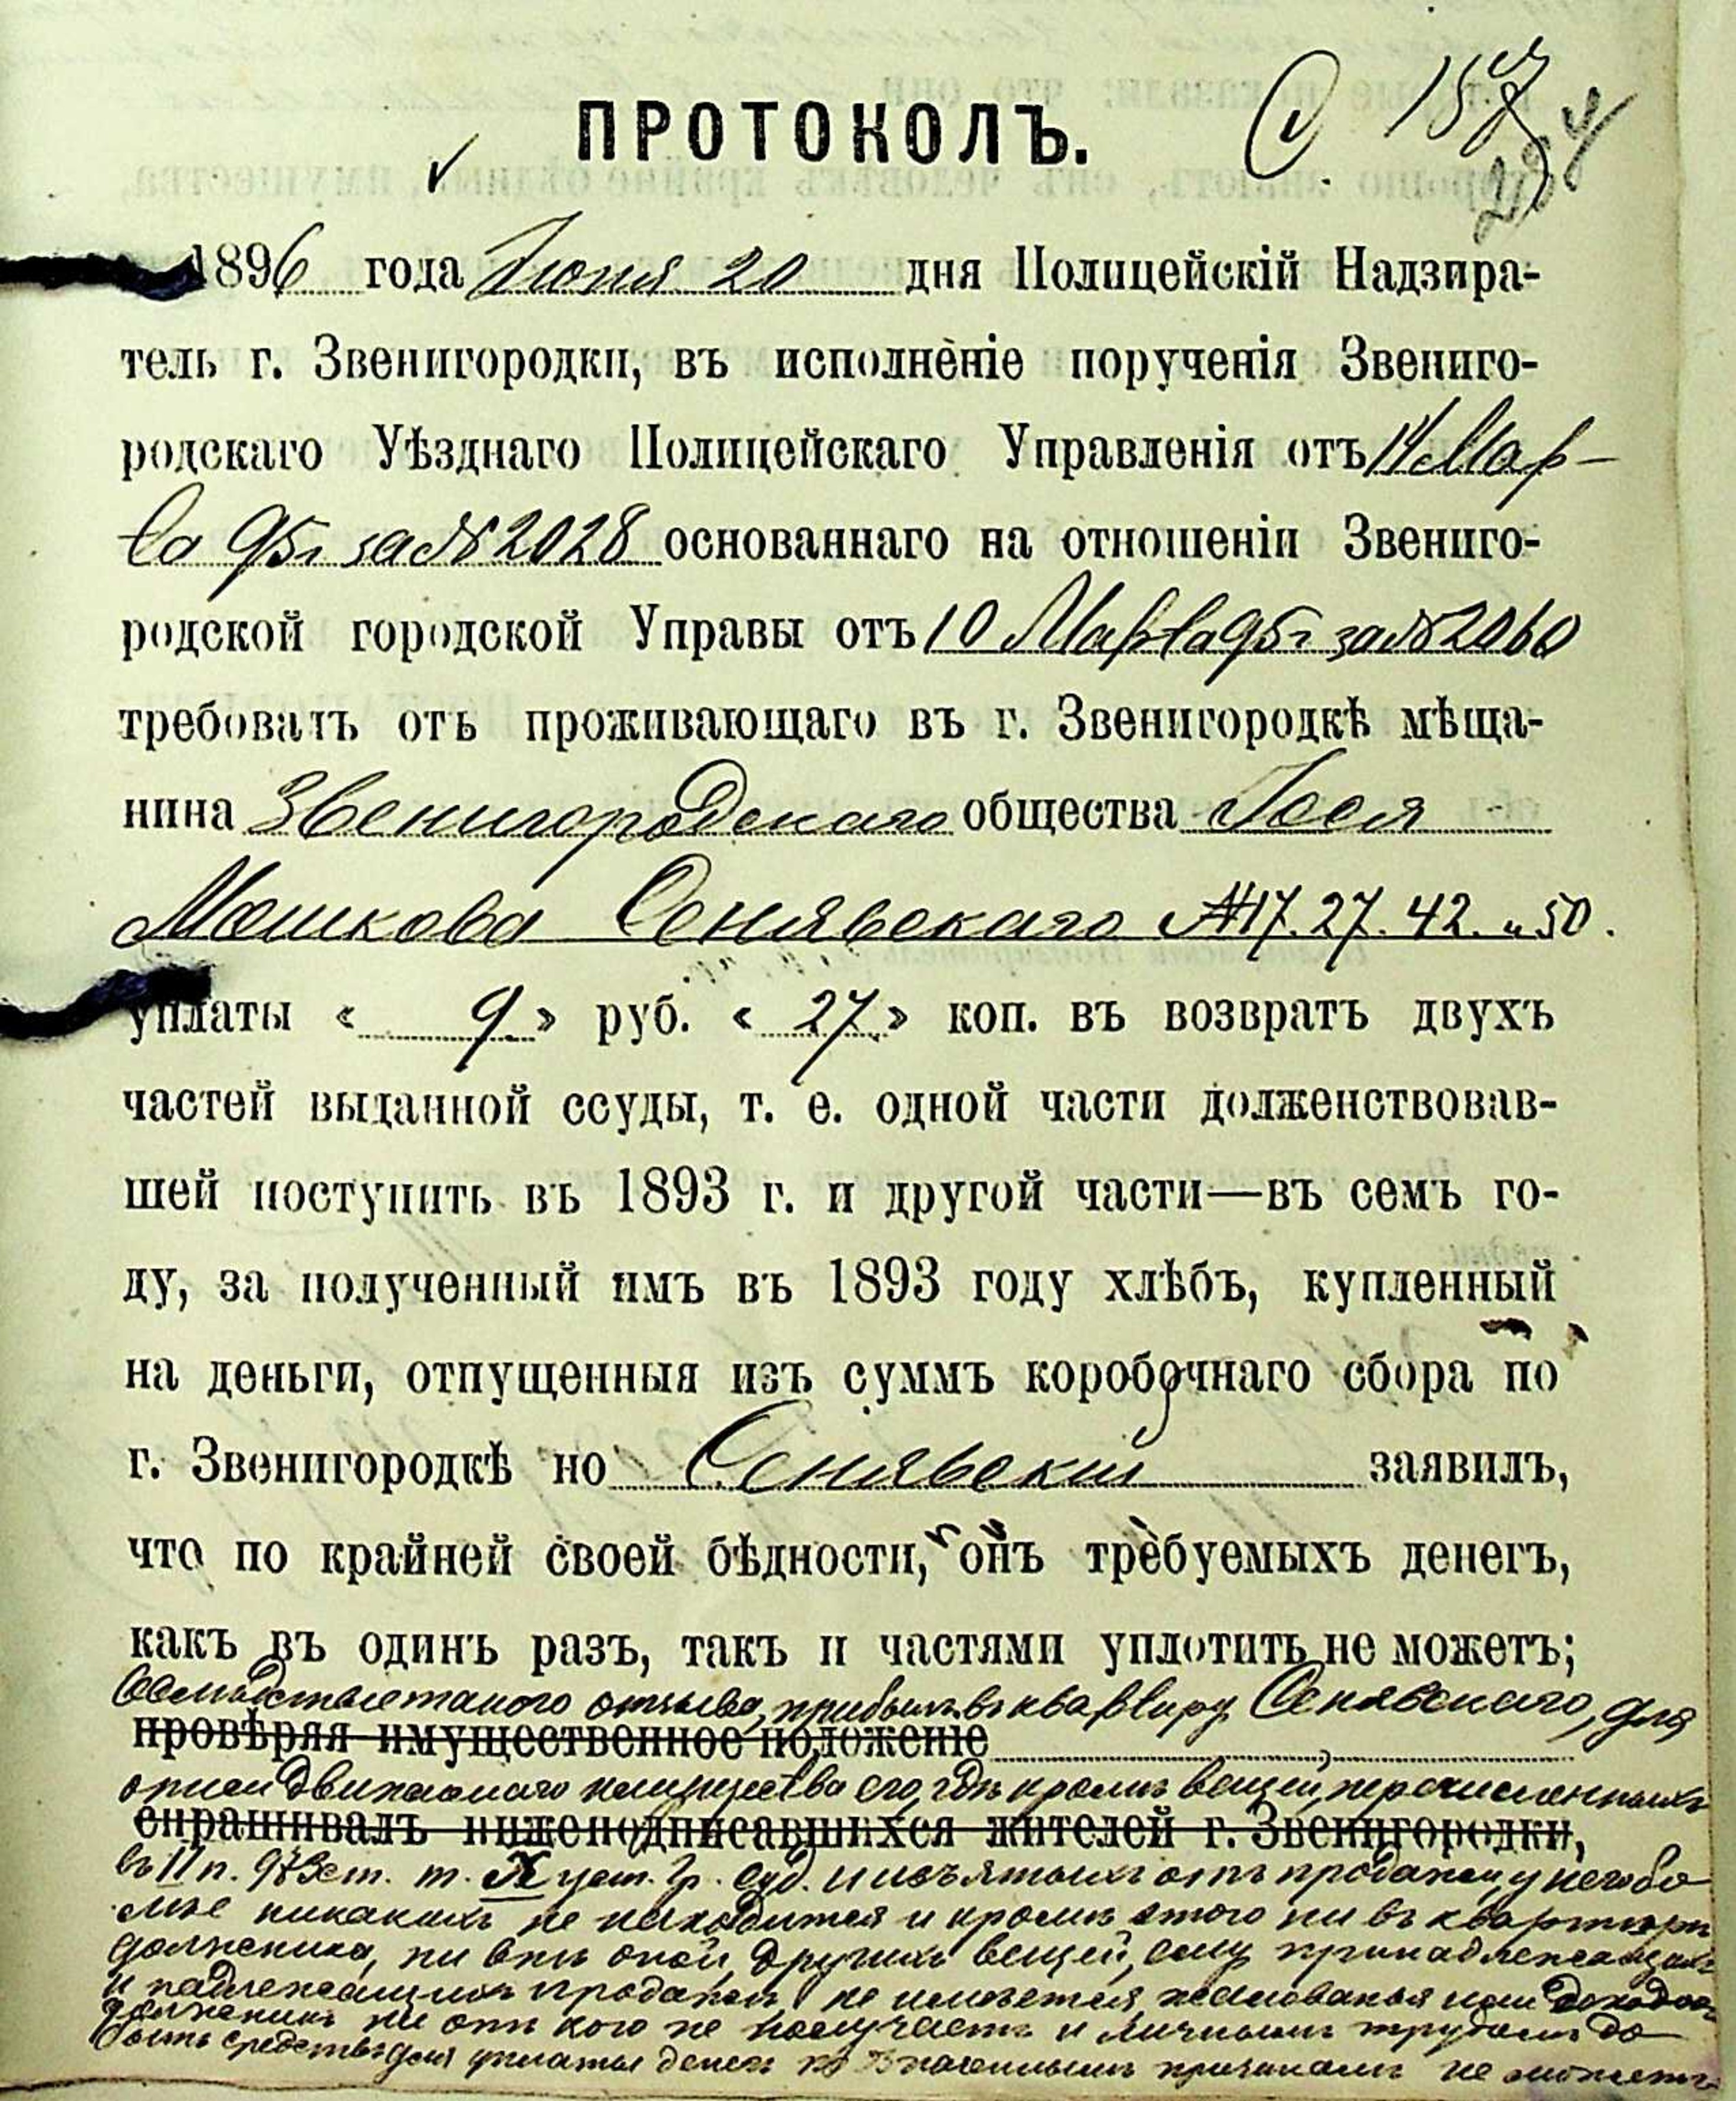 ПРОТОКОЛЪ.
157
254
1896 года Іюня 20 дня Полицейскій Надзира-
тель г. Звенигородки, въ исполненіе порученія Звениго-
родскаго Уѣзднаго Полицейскаго Управленія отъ 14 Мар-
та 95г за № 2028 основаннаго на отношеніи Звениго-
родской городской Управы отъ 10 Марта 95 г за № 2060
требовалъ отъ проживающаго въ г. Звенигородкѣ мѣща-
нина Звенигородскаго общества Іося
Мошкова Сенявскаго № 17. 27. 42. и 50.
уплаты « 9 » руб. « 27 » коп. въ возвратъ двухъ
частей выданной ссуды, т. е. одной части долженствовав-
шей поступить въ 1893 г. и другой части—въ семъ го-
ду, за полученный имъ въ 1893 году хлѣбъ, купленный
на деньги, отпущенныя изъ суммъ коробочнаго сбора по
г. Звенигородкѣ но Сенявский заявилъ,
что по крайней своей бѣдности, онъ требуемыхъ денегъ,
какъ въ одинъ разъ, такъ и частями уплотить не можетъ;
Вслѣдствіе такого отзыва, прибылъ въ квартиру Сенявскаго, для
провѣряя имущественное положеніе
описи движимаго имущества его, гдѣ кромѣ вещей, перечисленныхъ
спрашивалъ нижеподписавшихся жителей г. Звенигородки,
въ 11 п. 973 ст. т. X уст. Гр. Суд. и изъятыхъ отъ продажи, у него бо
лѣе никакихъ не находится и кромѣ этого ни въ квартирѣ
должника, ни внѣ оной, другихъ вещей, ему принадлежащихъ
и надлежащихъ продажи, не имѣется, жалованья или доходовъ
должникъ ни отъ кого не получаетъ и личнымъ трудомъ до
быть средствъ для уплаты денегъ по значеннымъ причинамъ не можетъ